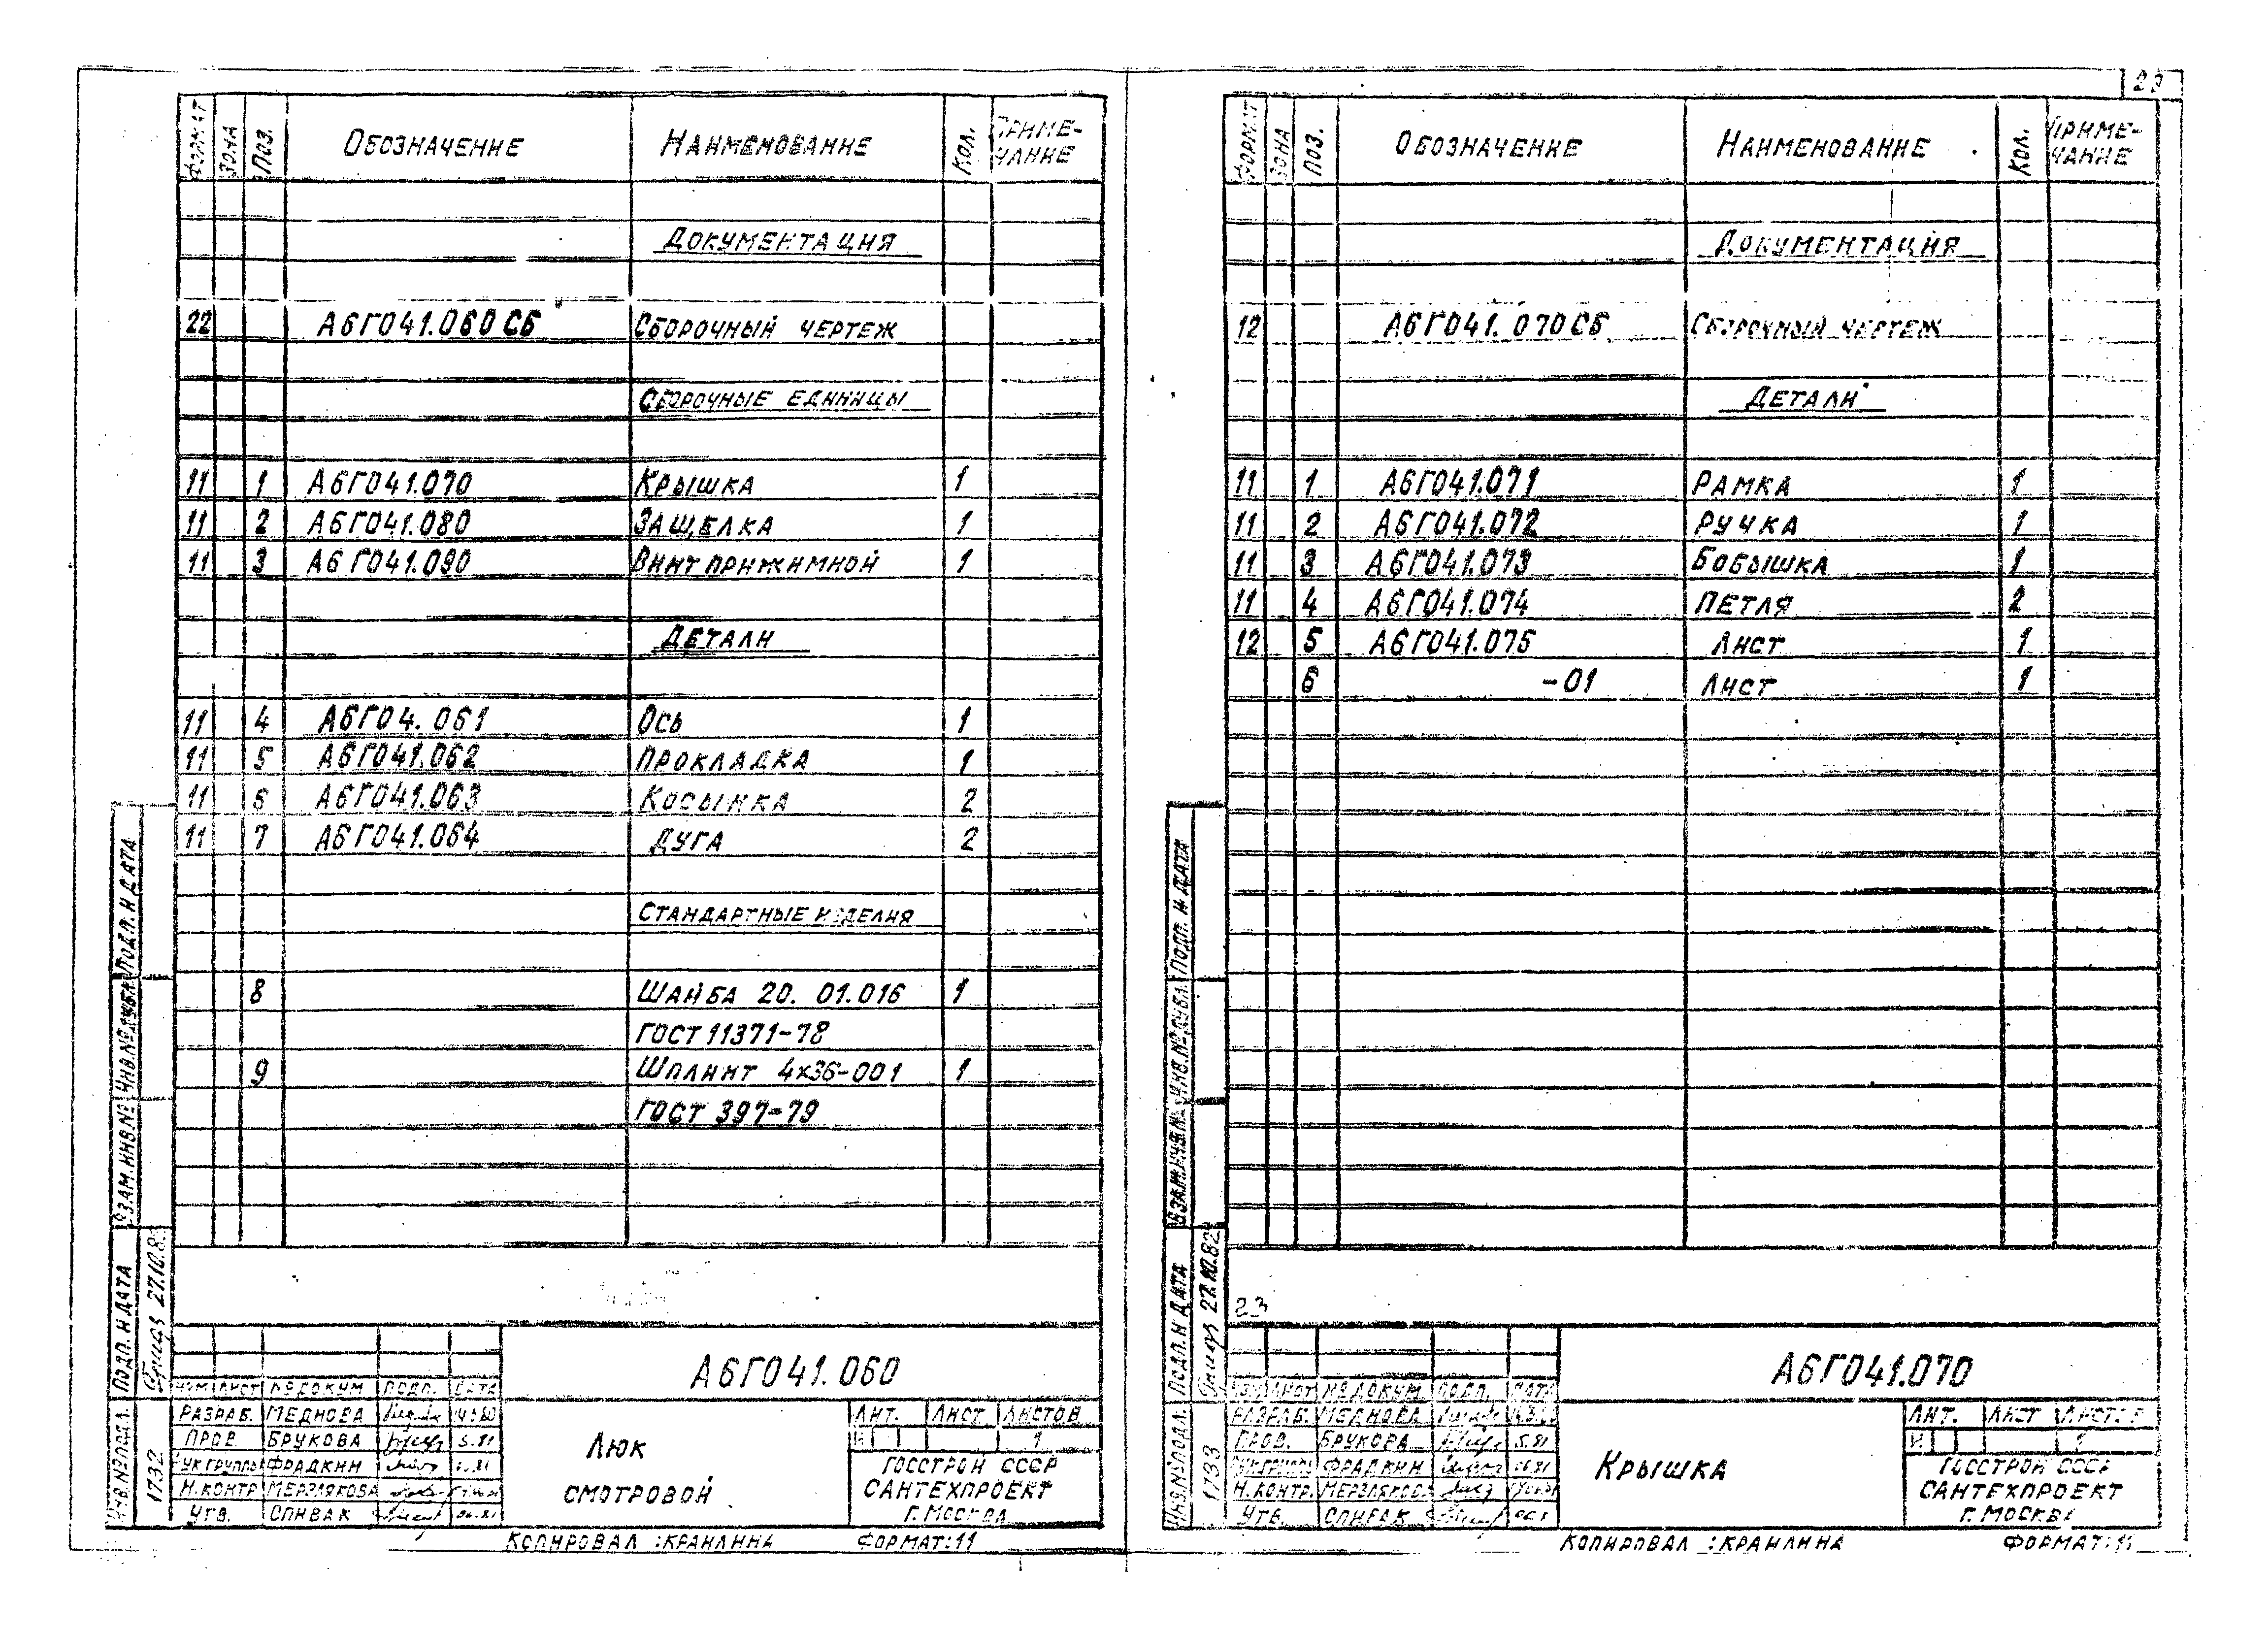 23
ФОРМАТ ЗОНА ПОЗ. ОБОЗНАЧЕНИЕ НАИМЕНОВАНИЕ КОЛ. ПРИМЕ-
ЧАНИЕ
ДОКУМЕНТАЦИЯ
22 А6Г041.060 СБ СБОРОЧНЫЙ ЧЕРТЕЖ
СБОРОЧНЫЕ ЕДИНИЦЫ
11 1 А6Г041.070 КРЫШКА 1
11 2 А6Г041.080 ЗАЩЕЛКА 1
11 3 А6Г041.090 ВИНТ ПРИЖИМНОЙ 1
ДЕТАЛИ
11 4 А6Г04.061 ОСЬ 1
11 5 А6Г041.062 ПРОКЛАДКА 1
11 6 А6Г041.063 КОСЫНКА 2
11 7 А6Г041.064 ДУГА 2
СТАНДАРТНЫЕ ИЗДЕЛИЯ
8 ШАЙБА 20. 01.016 1
ГОСТ 11371-78
9 ШПЛИНТ 4х36-001 1
ГОСТ 397-79
ПОДП. И ДАТА
ИНВ.№ ДУБЛ.
ВЗАМ.ИНВ.№
ПОДП. И ДАТА 27.10.8
ИНВ.№ ПОДЛ. 1732
А6Г041.060
ИЗМ ЛИСТ № ДОКУМ ПОДП. ДАТА
РАЗРАБ. МЕДНОВА
ПРОВ. БРУКОВА 5.81
РУК ГРУППЫ ФРАДКИН
Н.КОНТР МЕРЗЛЯКОВА
УТВ. СПИВАК 06.81
ЛЮК
СМОТРОВОЙ
ЛИТ. ЛИСТ ЛИСТОВ
И 1
ГОССТРОЙ СССР
САНТЕХПРОЕКТ
Г. МОСКВА
КОПИРОВАЛ :КРАИЛИНА ФОРМАТ:11
ФОРМАТ ЗОНА ПОЗ. ОБОЗНАЧЕНИЕ НАИМЕНОВАНИЕ КОЛ. ПРИМЕ-
ЧАНИЕ
ДОКУМЕНТАЦИЯ
12 А6Г041.070 СБ СБОРОЧНЫЙ ЧЕРТЕЖ
ДЕТАЛИ
11 1 А6Г041.071 РАМКА 1
11 2 А6Г041.072 РУЧКА 1
11 3 А6Г041.073 БОБЫШКА 1
11 4 А6Г041.074 ПЕТЛЯ 2
12 5 А6Г041.075 ЛИСТ 1
6 -01 ЛИСТ 1
ПОДП. И ДАТА
ИНВ.№ ДУБЛ.
ВЗАМ.ИНВ.№
ПОДП. И ДАТА 27.10.82
ИНВ.№ ПОДЛ. 1733
23
А6Г041.070
ИЗМ ЛИСТ № ДОКУМ ПОДП. ДАТА
РАЗРАБ. МЕДНОВА
ПРОВ. БРУКОВА 5.81
РУК ГРУППЫ ФРАДКИН 06.81
Н.КОНТР. МЕРЗЛЯКОВА
УТВ. СПИВАК
КРЫШКА
ЛИТ. ЛИСТ ЛИСТОВ
И 1
ГОССТРОЙ СССР
САНТЕХПРОЕКТ
Г. МОСКВА
КОПИРОВАЛ :КРАИЛИНА ФОРМАТ:11